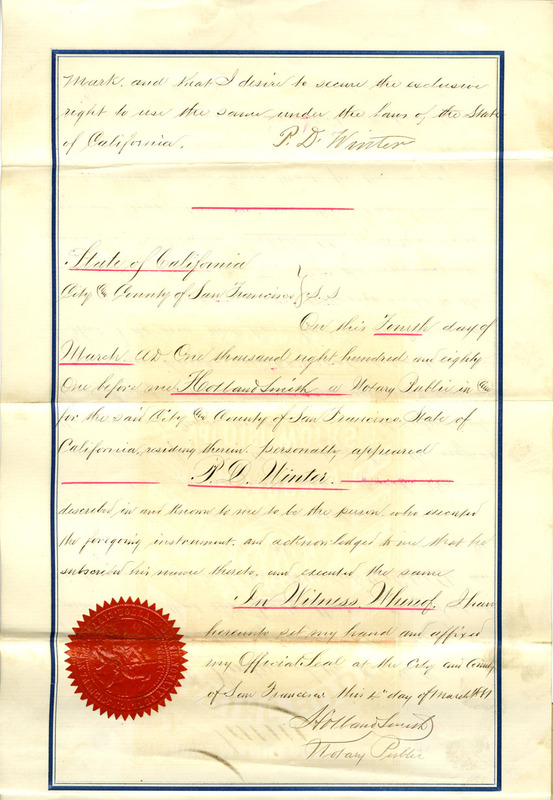 Mark, and that I desire to secure the exclusive
right to use the same under the laws of the State
of California. P. D. Winter
State of California
City & County of San Francisco } S.S
On this Fourth day of
March A.D. One thousand eight hundred and eighty
One before me Holland Smith a Notary Public in &
for the said City & County of San Francisco, State of
California, residing therein, personally appeared
P. D. Winter.
described in and known to me to be the person who executed
the foregoing instrument, and acknowledged to me that he
subscribed his name thereto, and executed the same
In Witness Whereof, I have
hereunto set my hand and affixed
my Official Seal at the City and County
of San Francisco this 4th day of March 1881
Holland Smith
Notary Public